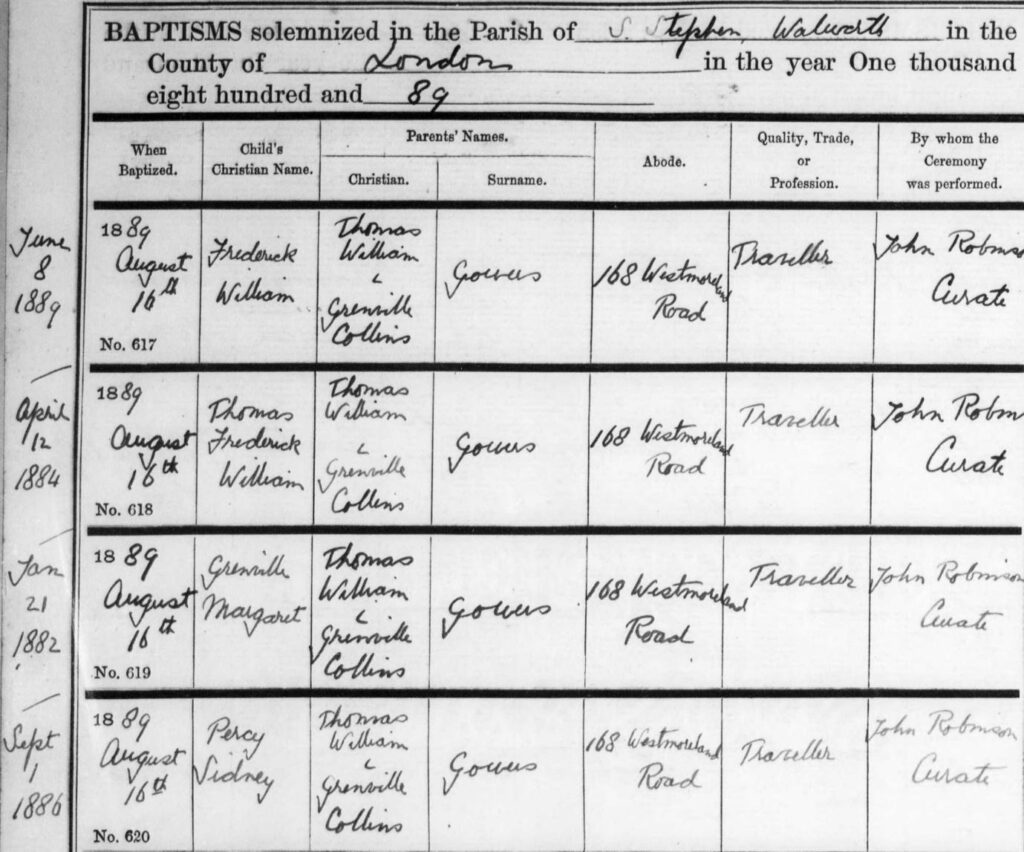 BAPTISMS solemnized in the Parish of S. Stephen, Walworth in the
County of London in the year One thousand
eight hundred and 89
When Baptized.
Child's Christian Name.
Parents' Names.
Christian.
Surname.
Abode.
Quality, Trade, or Profession.
By whom the Ceremony was performed.
June
8
1889
1889
August
16th
No. 617
Frederick
William
Thomas
William
&
Grenville
Collins
Gowers
168 Westmoreland
Road
Traveller
John Robinso
Curate
April
12
1884
1889
August
16th
No. 618
Thomas
Frederick
William
Thomas
William
&
Grenville
Collins
Gowers
168 Westmoreland
Road
Traveller
John Robin
Curate
Jan
21
1882
1889
August
16th
No. 619
Grenville
Margaret
Thomas
William
&
Grenville
Collins
Gowers
168 Westmoreland
Road
Traveller
John Robinson
Curate
Sept
1
1886
1889
August
16th
No. 620
Percy
Sidney
Thomas
William
&
Grenville
Collins
Gowers
168 Westmoreland
Road
Traveller
John Robinson
Curate